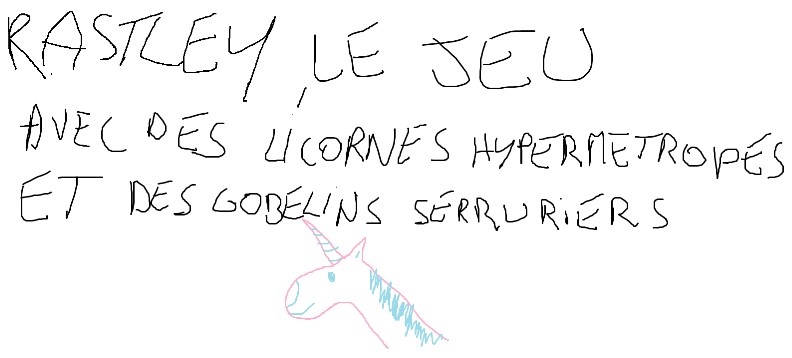 RASTLEY, LE JEU
AVEC DES LICORNES HYPERMETROPES
ET DES GOBELINS SERRURIERS